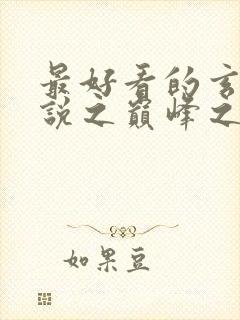 最好看的玄
説之巔峰之
如果豆